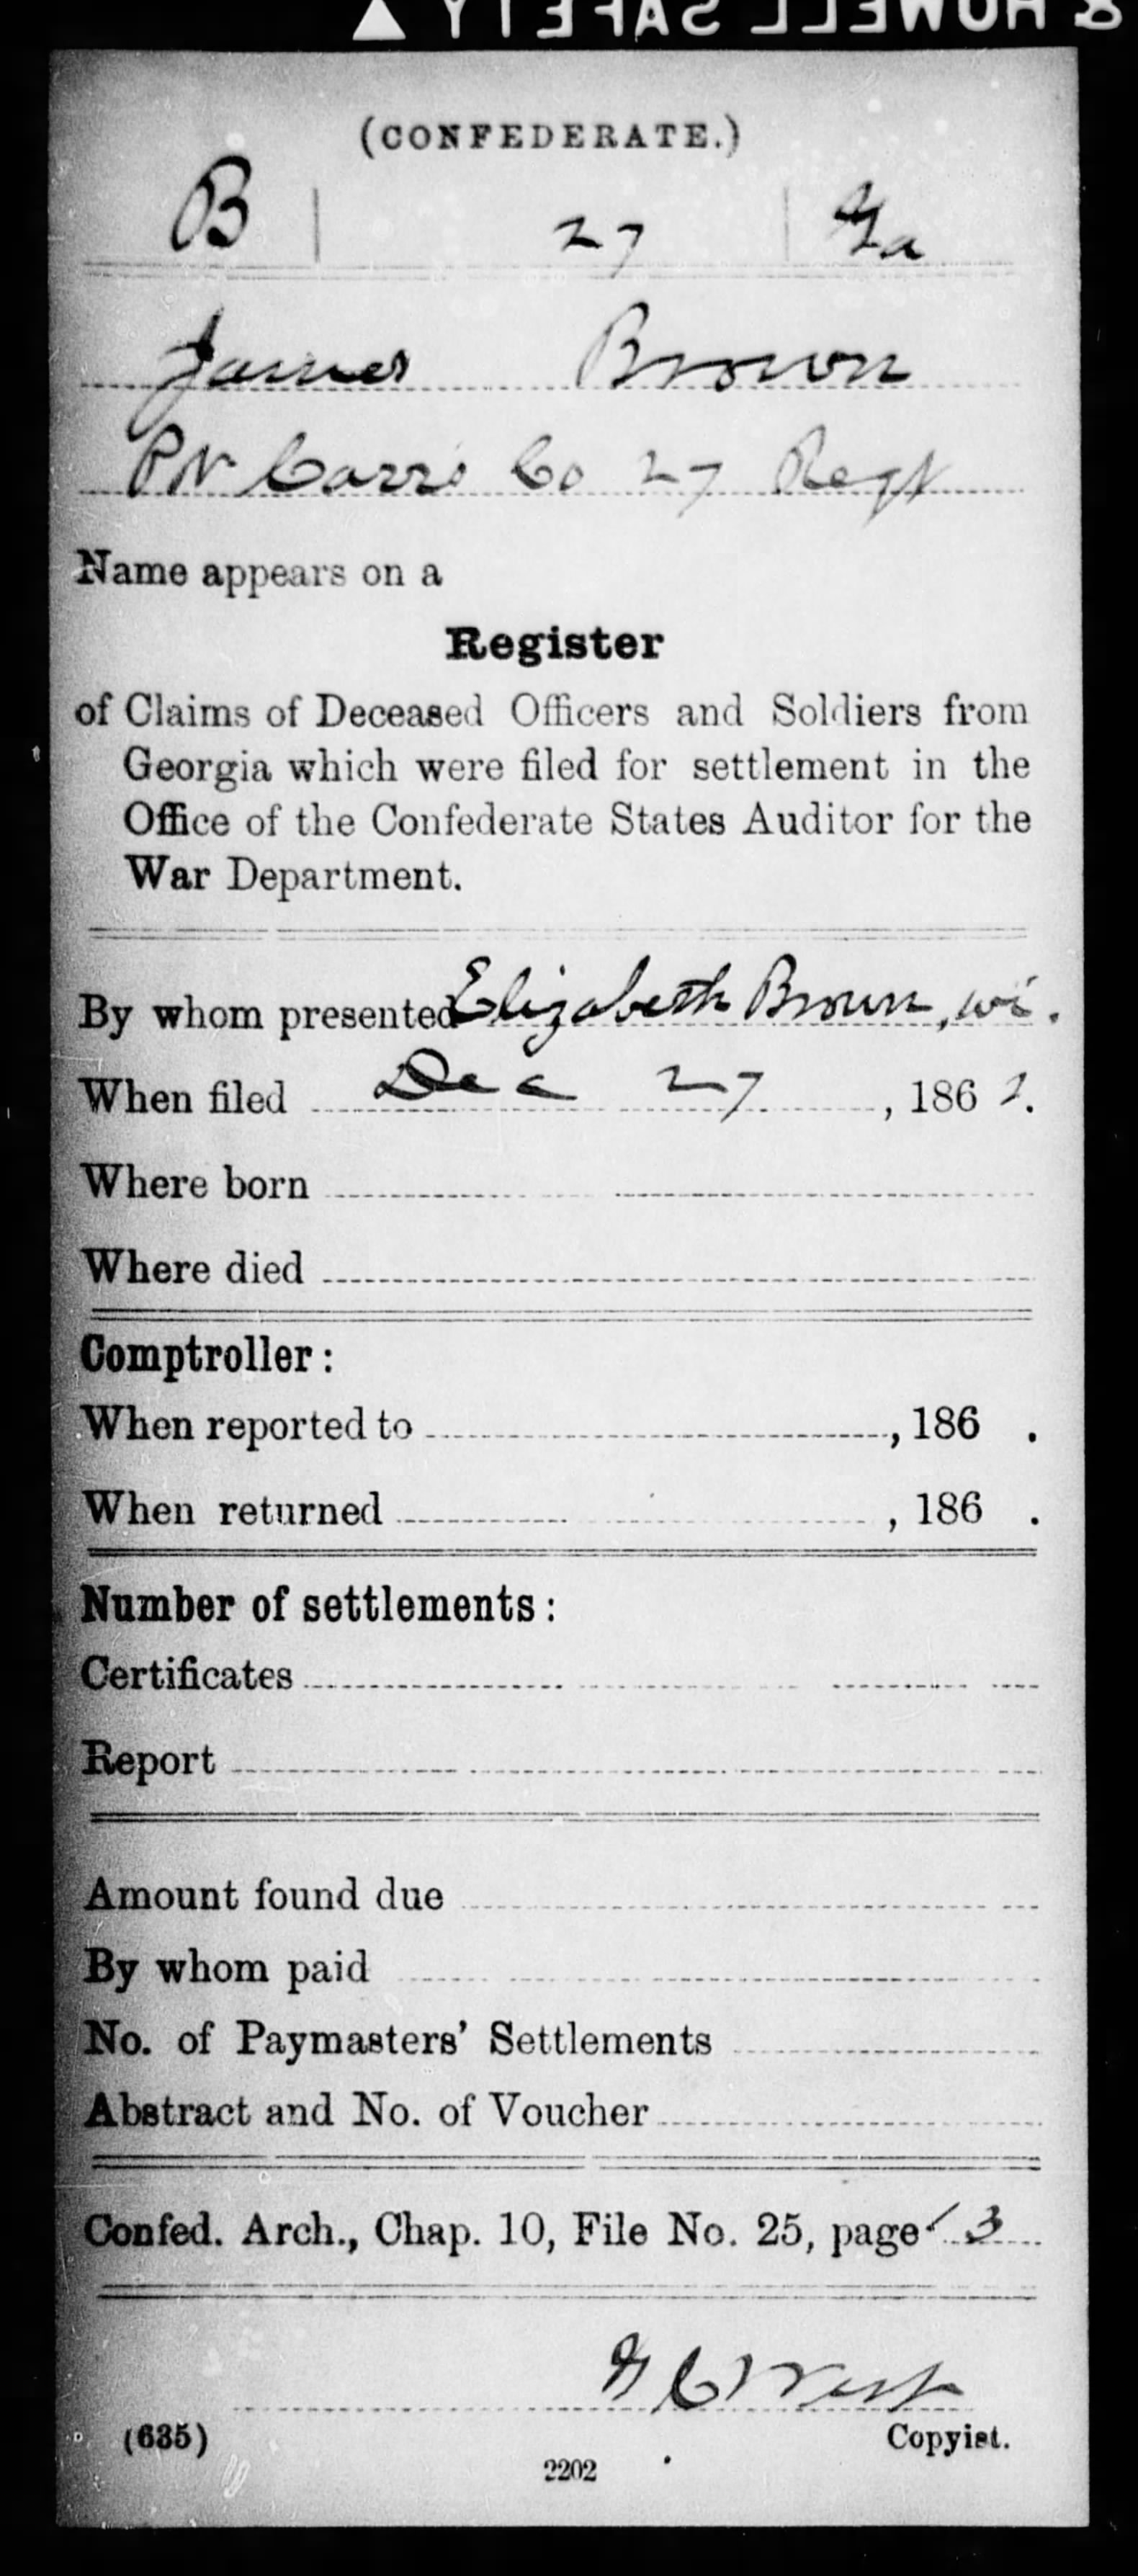 & HOWELL SAFETY ▲
(CONFEDERATE.)
B 27 Ga
James Brown
P N Carr's Co 27 Regt
Name appears on a
Register
of Claims of Deceased Officers and Soldiers from
Georgia which were filed for settlement in the
Office of the Confederate States Auditor for the
War Department.
By whom presented Elizabeth Brown, wi.
When filed Dec 27, 1862.
Where born
Where died
Comptroller:
When reported to , 186 .
When returned , 186 .
Number of settlements:
Certificates
Report
Amount found due
By whom paid
No. of Paymasters' Settlements
Abstract and No. of Voucher
Confed. Arch., Chap. 10, File No. 25, page 13
West
(635) Copyist.
2202